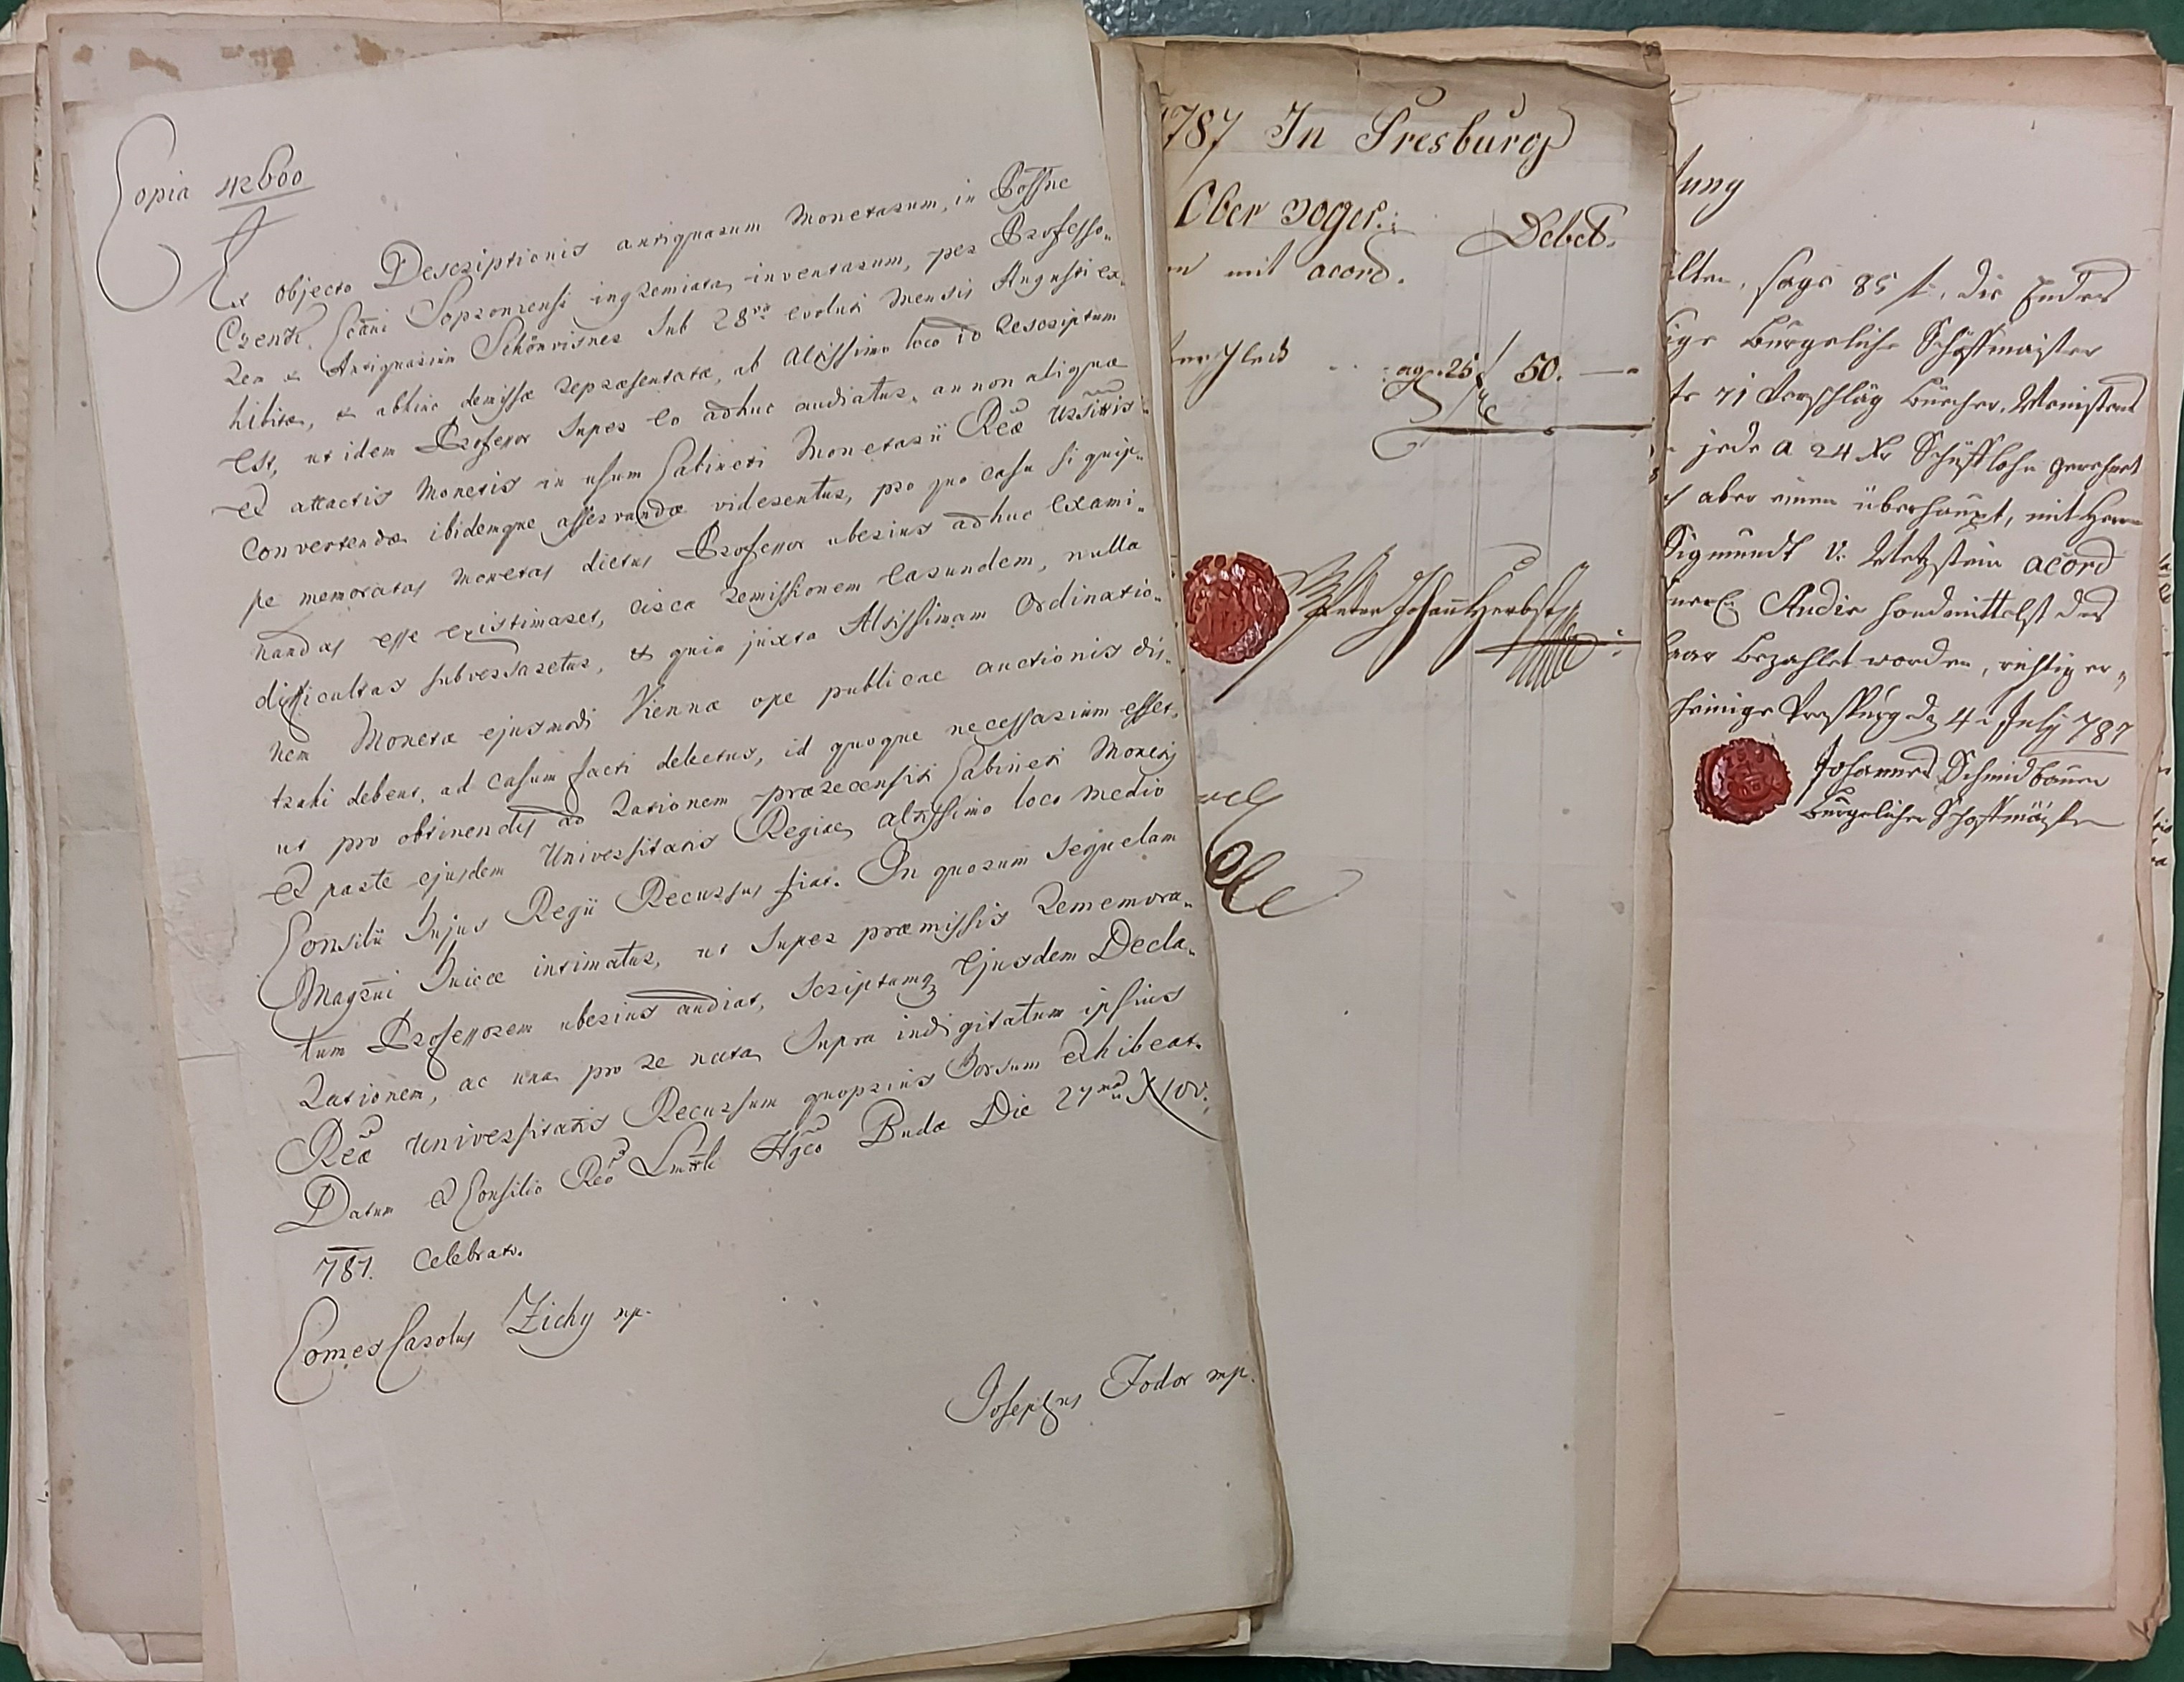 Copia 42600
Ex objecto Descriptionis antiquarum Monetarum, in Possne
Czenk. Scāni Soproniensi ingremiata inventarum, per Professo-
rem & Antiquarium Schönvisner sub 28va evoluti Mensis Augusti ex-
hibitæ, & abhinc demissæ repræsentatæ, ab Altissimo loco id rescriptum
est, ut idem Professor super eo adhuc audiatur, an non aliquæ
ex attactis Monetis in usum Cabineti Monetarii Reæ
convertendæ ibidemque asservandæ viderentur, pro quo casu si quip-
pe memoratas monetas dictus Professor uberius adhuc exami-
nandas esse existimaret, circa remissionem earundem, nulla
difficultas subversaretur, & quia juxta Altissimam Ordinatio-
nem Monetæ ejusmodi Viennæ ope publicae auctionis dis-
trahi debent, ad casum facti delectus, id quoque necessarium esset,
ut pro obtinendis ad rationem prærecensiti Cabineti Monetis
ex parte ejusdem Universitatis Regiæ altissimo loco medio
Consilii hujus Regii Recursus fiat. In quorum sequelam
Magrui huicce intimatur, ut super præmissis rememora-
tum Professorem uberius audiat, scriptamq ejusdem Decla-
rationem, ac una pro re nata supra indigitatum ipsius
Reæ Universitatis Recursum quoprius horsum exhibeat.
Datum ex Consilio Reo Lmttli Hgco Budæ Die 27ma Xbr.
787. Celebrato.
Comes Carolus Zichy mp.
Josephus Fodor mp.
1787 In Presburg
Ober vogel.:
Debet.
mit acord.
ag. 25 / 50. —
Peter Johann Herbst
tung
ilten, sage 85 f, die Endes
ige Burgerliche Schiffmaister
71 Vorschläg Buecher, Meinstens
jede a 24 Xr Schifflohn gerechnet
aber einen überhaupt, mit Herrn
Sigmundt v: Metzstein acord
Andre handmittelst des
baar bezahlet worden, richtig er,
heinige Preßburg d 4. July 787
Johannes Schmidbauer
Burgerlicher Schiffmäister